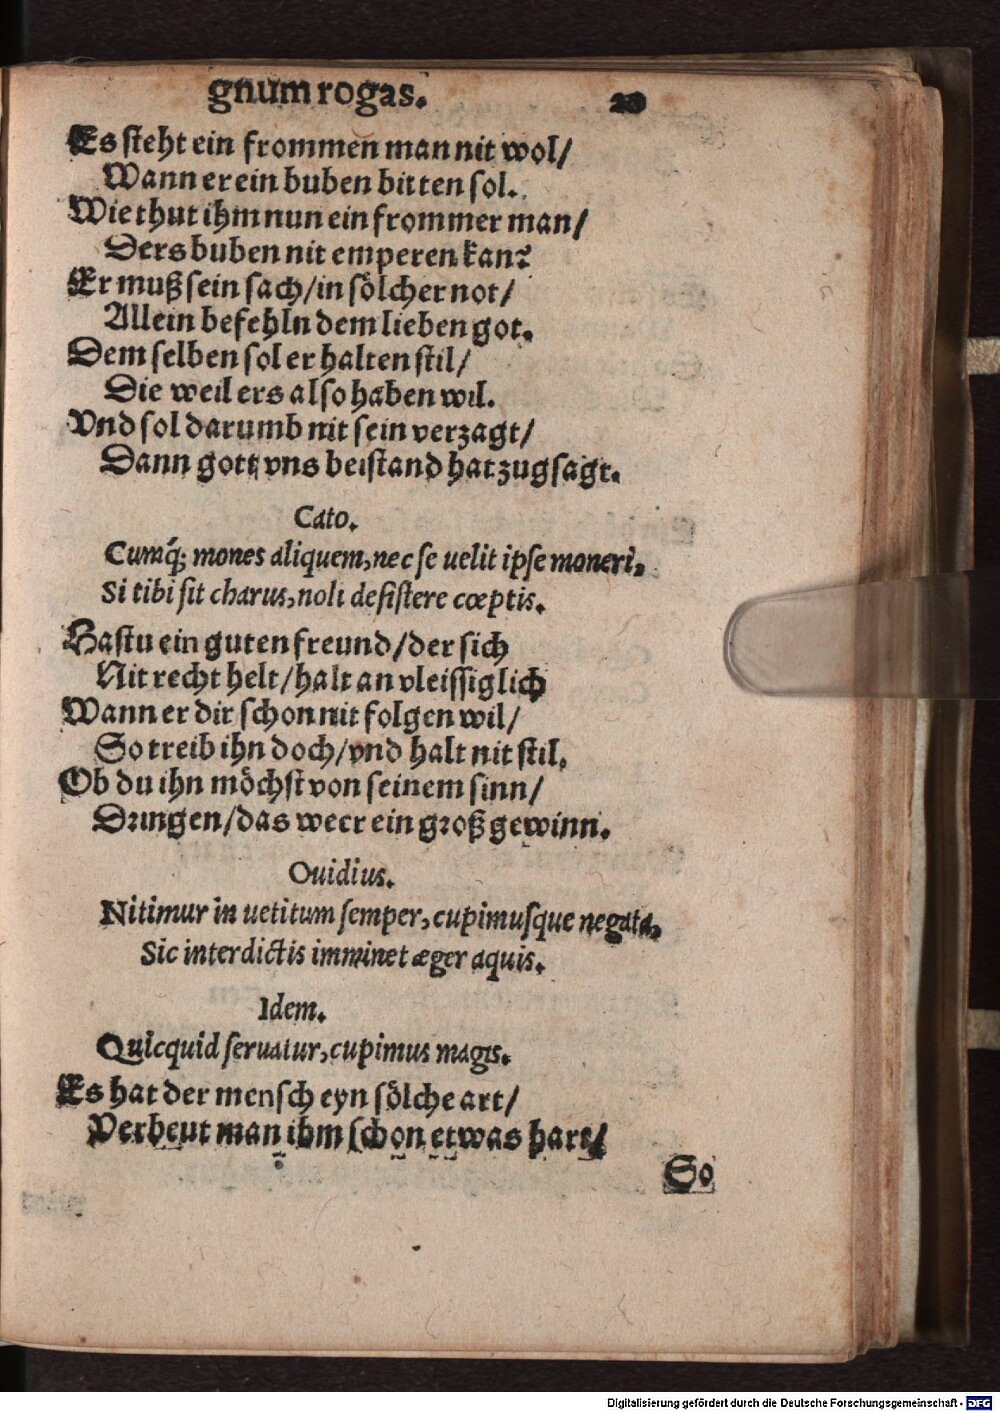 gnum rogas. 20
Es steht ein frommen man nit wol/
Wann er ein buben bitten sol.
Wie thut ihm nun ein frommer man/
Ders buben nit emperen kan?
Er muß sein sach/in sölcher not/
Allein befehln dem lieben got.
Dem selben sol er halten stil/
Die weil ers also haben wil.
Vnd sol darumb nit sein verzagt/
Dann gott vns beistand hat zugsagt.
Cato.
Cumq́; mones aliquem, nec se uelit ipse moneri,
Si tibi sit charus, noli desistere cœptis.
Hastu ein guten freund/der sich
Nit recht helt/halt an vleissiglich
Wann er dir schon nit folgen wil/
So treib ihn doch/vnd halt nit stil,
Ob du ihn möchst von seinem sinn/
Dringen/das weer ein groß gewinn.
Ouidius.
Nitimur in uetitum semper, cupimusque negata,
Sic interdictis imminet æger aquis.
Idem.
Quicquid seruatur, cupimus magis.
Es hat der mensch eyn sölche art/
Verbeut man ihm schon etwas hart/
So
Digitalisierung gefördert durch die Deutsche Forschungsgemeinschaft - DFG